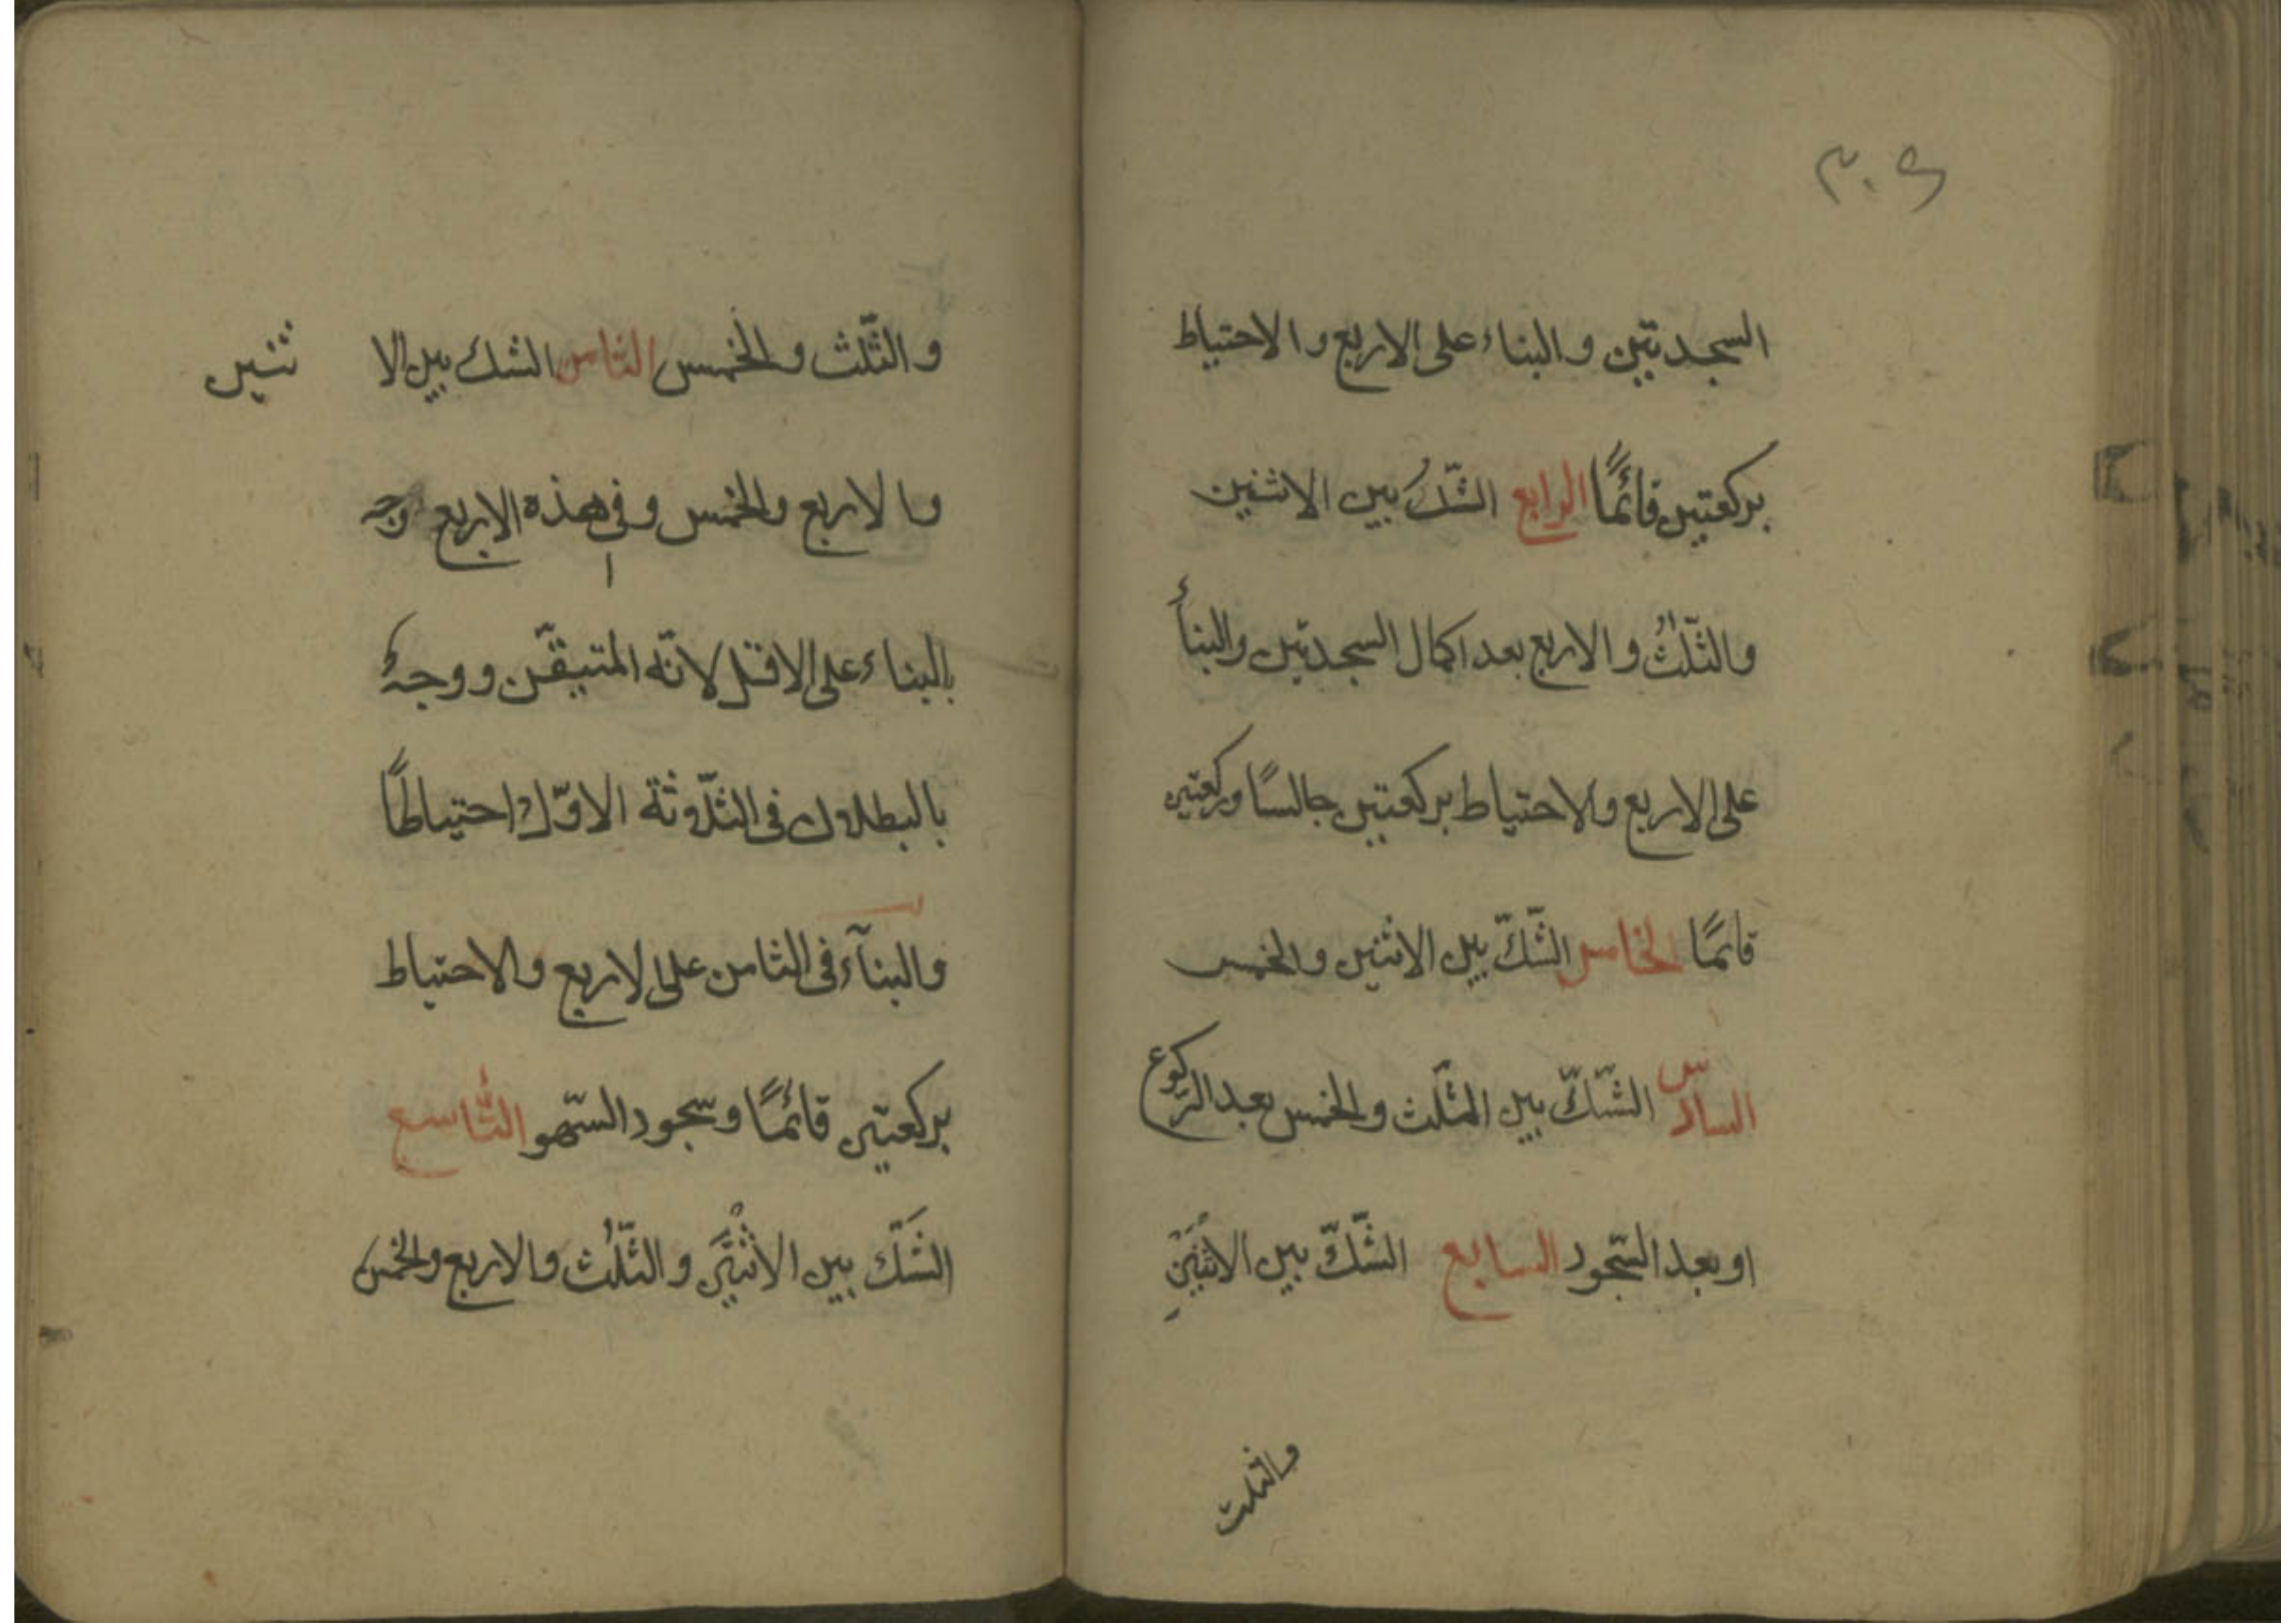 السجدتين والبناء على الاربع والاحتياط
بركعتين قائمًا الرابع الشّكُ بين الاثنين
والثّلثُ والاربع بعد اكمال السجدتين والبنأ
على الاربع والاحتياط بركعتين جالسًا وركعتين
قائمًا الخامس الشّكّ بين الاثنين والخمس
السادس الشّكّ بين الثّلث والخمس بعد الرّكوع
او بعد السّجود السابع الشّكّ بين الاثنَيْنِ
والثلث
والثّلث والخمس الثامن الشك بين الا ثنين
والاربع والخمس وفى هذه الاربع وجه
بالبناء على الاقل لانّه المتيقّن ووجهٌ
بالبطلان فى الثلاثة الاوّل احتياطًا
والبنآء فى الثامن على الاربع والاحتياط
بركعتين قائمًا وسجود السّهو التّاسع
الشَّكّ بين الاثْنَيْن والثّلُث والاربع والخمس